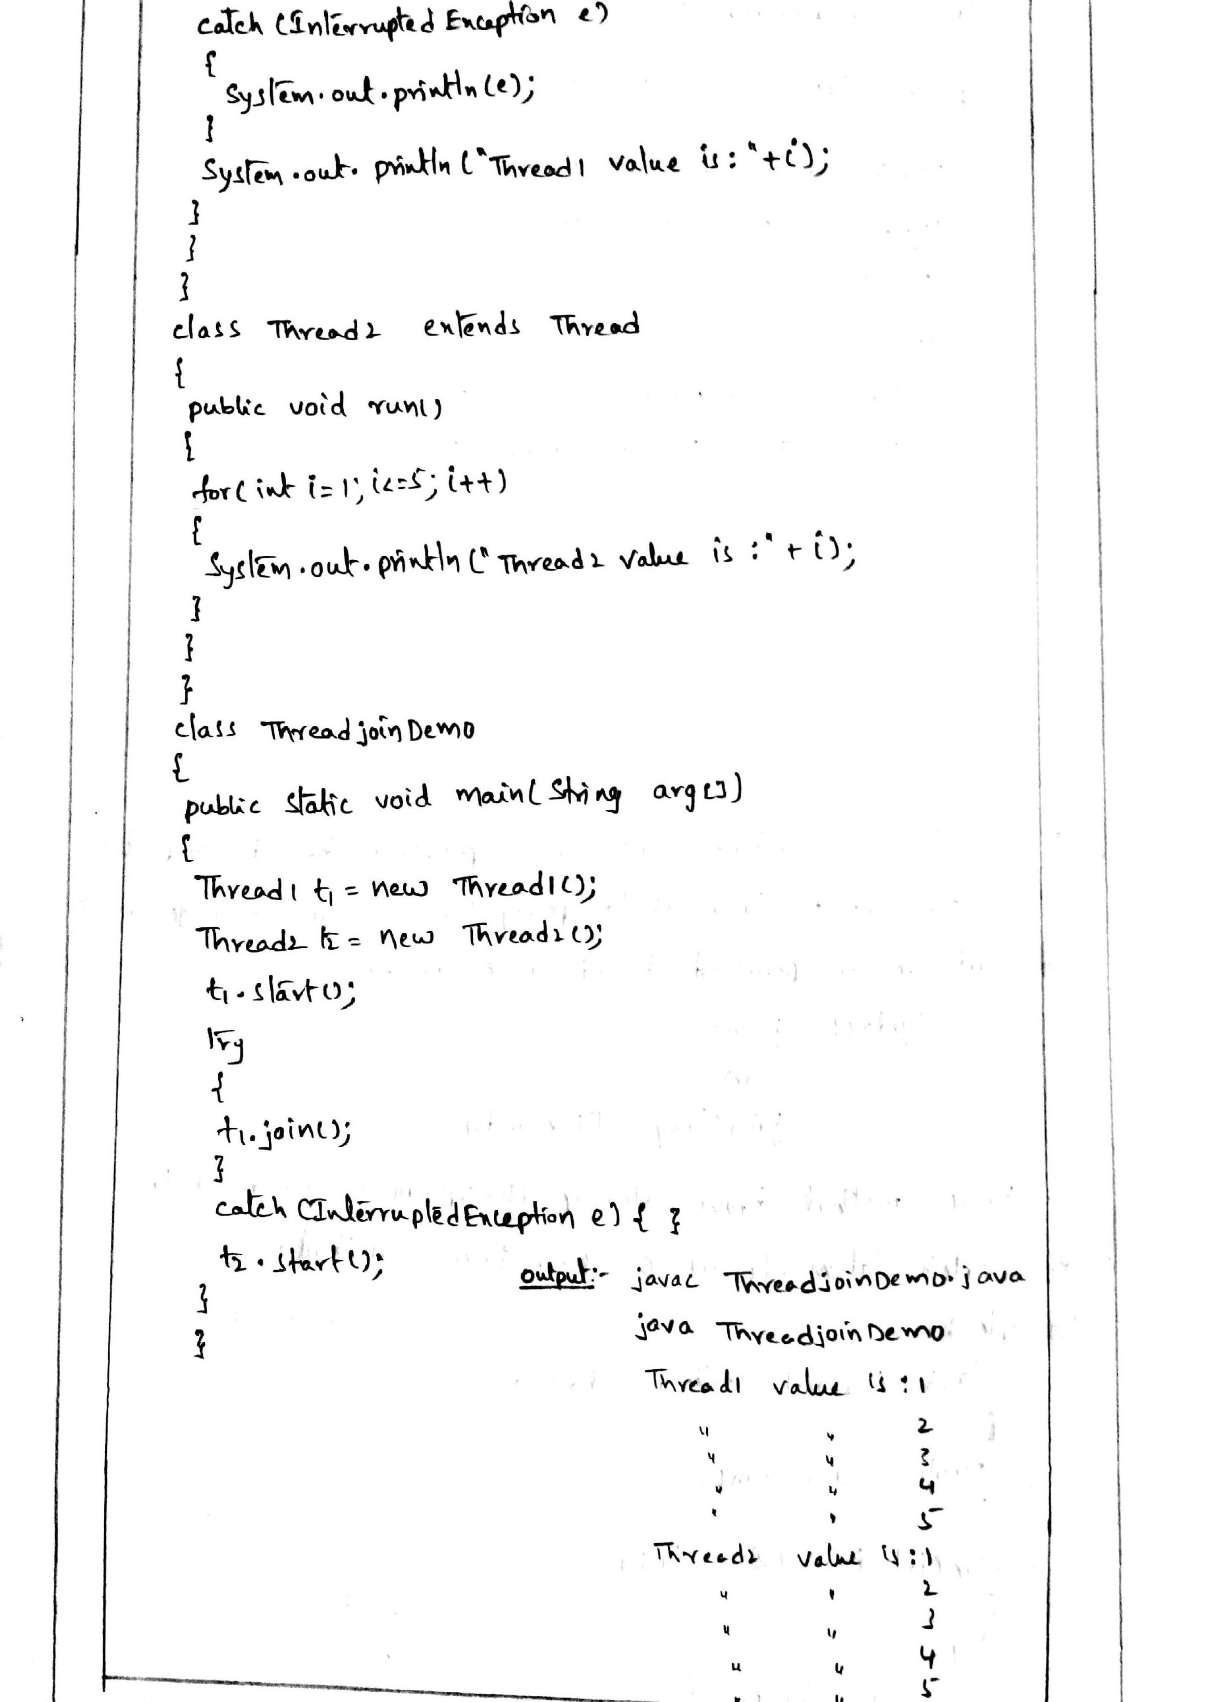 catch (Interrupted Exception e)
{
System.out.println(e);
}
System.out.println("Thread1 value is:"+i);
}
}
}
class Thread2 extends Thread
{
public void run()
{
for(int i=1;i<=5;i++)
{
System.out.println("Thread2 value is:"+i);
}
}
}
class ThreadjoinDemo
{
public static void main(String arg[])
{
Thread1 t1 = new Thread1();
Thread2 t2 = new Thread2();
t1.start();
try
{
t1.join();
}
catch (InterruptedException e) { }
t2.start();
}
}
output:- javac ThreadjoinDemo.java
java ThreadjoinDemo
Thread1 value is:1
" " 2
" " 3
" " 4
" " 5
Thread2 value is:1
" " 2
" " 3
" " 4
" " 5